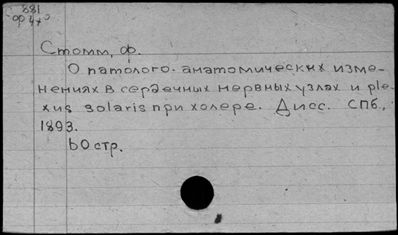 881
Стомм, Ф.
О патолого-анатомических изме-
нениях в сердечных нервных узлах и ple-
xus solaris при холере. Дисс. СПб.,
1893.
60 стр.